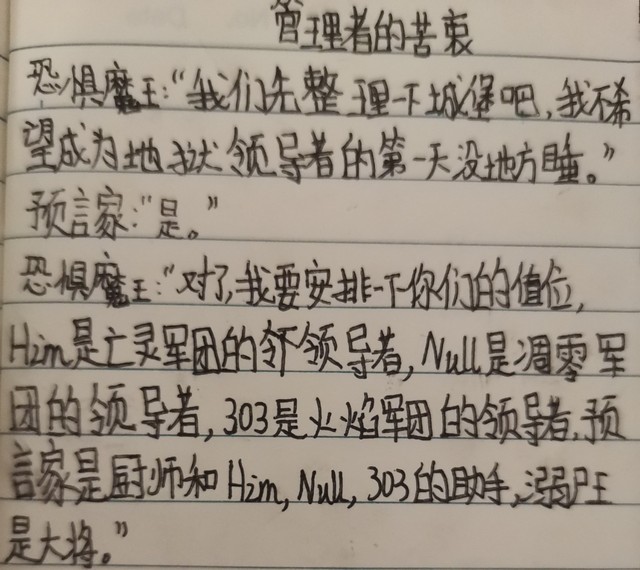 管理者的苦衷
恐惧魔王:“我们先整理一下城堡吧,我不希
望成为地狱领导者的第一天没地方睡。”
预言家:“是。”
恐惧魔王:“对了,我要安排一下你们的值位,
Him是亡灵军团的领导者,Null是凋零军
团的领导者,303是火焰军团的领导者,预
言家是厨师和Him,Null,303的助手,溺尸王
是大将。”